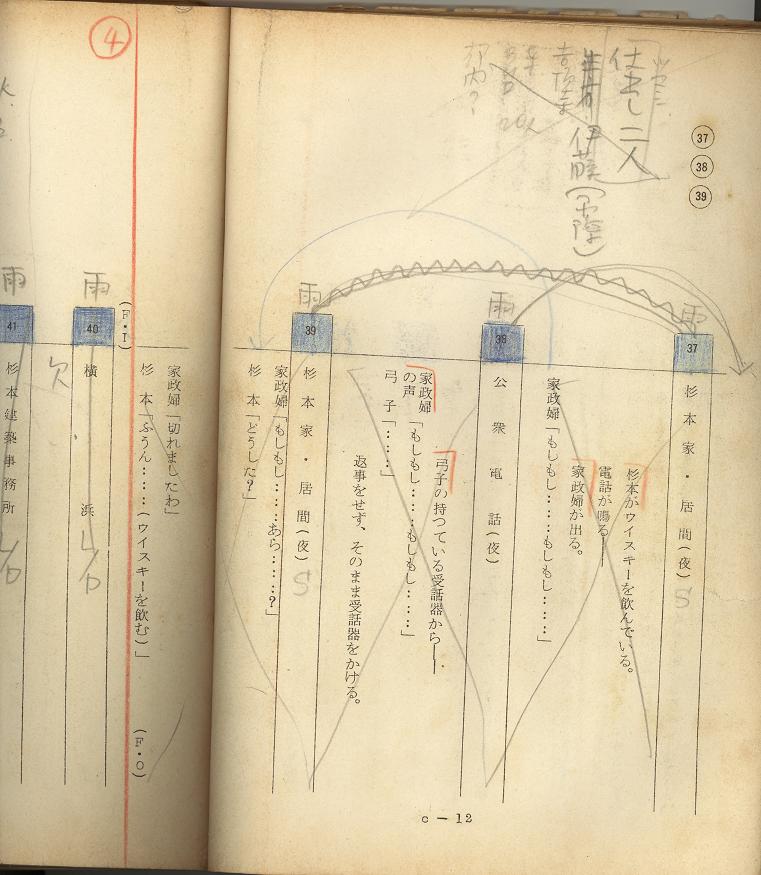 37
38
39
仕出し二人
伊藤
雨
37
杉本家・居間(夜)
S
杉本がウイスキーを飲んでいる。
電話が鳴る――
家政婦が出る。
家政婦「もしもし……もしもし……」
雨
38
公衆電話(夜)
弓子の持つている受話器から――
家政婦の声「もしもし……もしもし……」
弓子「……」
返事をせず、そのまま受話器をかける。
雨
39
杉本家・居間(夜)
S
家政婦「もしもし……あら……?」
杉本「どうした?」
c－12
4
家政婦「切れましたわ」
杉本「ふうん……(ウイスキーを飲む)」
(F・O)
(F・I)
雨
40
横浜
L/D
欠
雨
41
杉本建築事務所
L/D